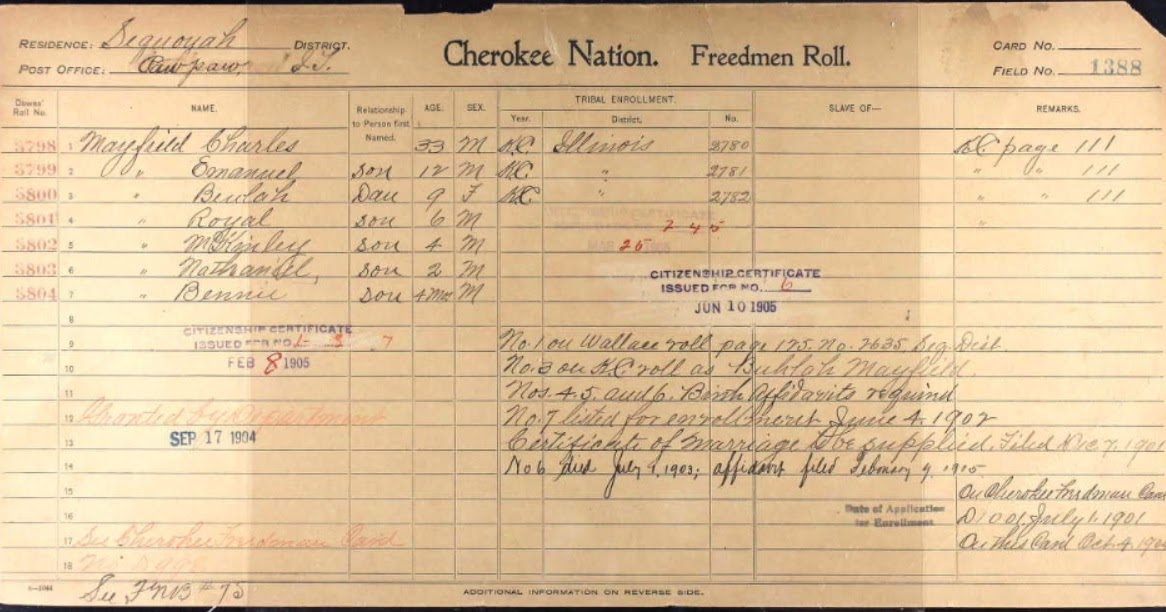 RESIDENCE: Sequoyah DISTRICT.
POST OFFICE: Cawpaw, I.T.
Cherokee Nation. Freedmen Roll.
CARD NO.
FIELD NO. 1388
Dawes' Roll No. NAME. Relationship to Person first Named. AGE. SEX. TRIBAL ENROLLMENT. Year. District. No. SLAVE OF— REMARKS.
3798 1 Mayfield Charles 33 M K.C. Illinois 2780 K.C. page 111
3799 2 " Emanuel Son 12 M K.C. " 2781 " " 111
3800 3 " Beulah Dau 9 F K.C. " 2782 " " 111
3801 4 " Royal Son 6 M "
3802 5 " McKinley Son 4 M
3803 6 " Nathaniel, Son 2 M
3804 7 " Bennie Son 4 Mos M
2 4 5
MAR 25 1905
CITIZENSHIP CERTIFICATE
ISSUED FOR NO. 6
JUN 10 1905
8
CITIZENSHIP CERTIFICATE
ISSUED FOR NO. 1- 3 7
FEB 8 1905
9 No. 1 on Wallace roll page 175, No. 2635, Seq. Dist
10 No. 3 on K.C. roll as Buhlah Mayfield.
11 Nos. 4.5. and 6. Birth affidavits required
12 Granted No. 7 listed for enrollment June 4, 1902
SEP 17 1904
13 Certificate of Marriage to be supplied. Filed Dec 7, 1901
14 No 6 died July 1, 1903; affidavit filed February 9, 1905
15 On Cherokee Freedman Card
16 Date of Application for Enrollment D 10 of July 1. 1901
17 See Cherokee Freedman Card On this Card Oct 4
18 No.
6-2044 See F N B # 75
ADDITIONAL INFORMATION ON REVERSE SIDE.